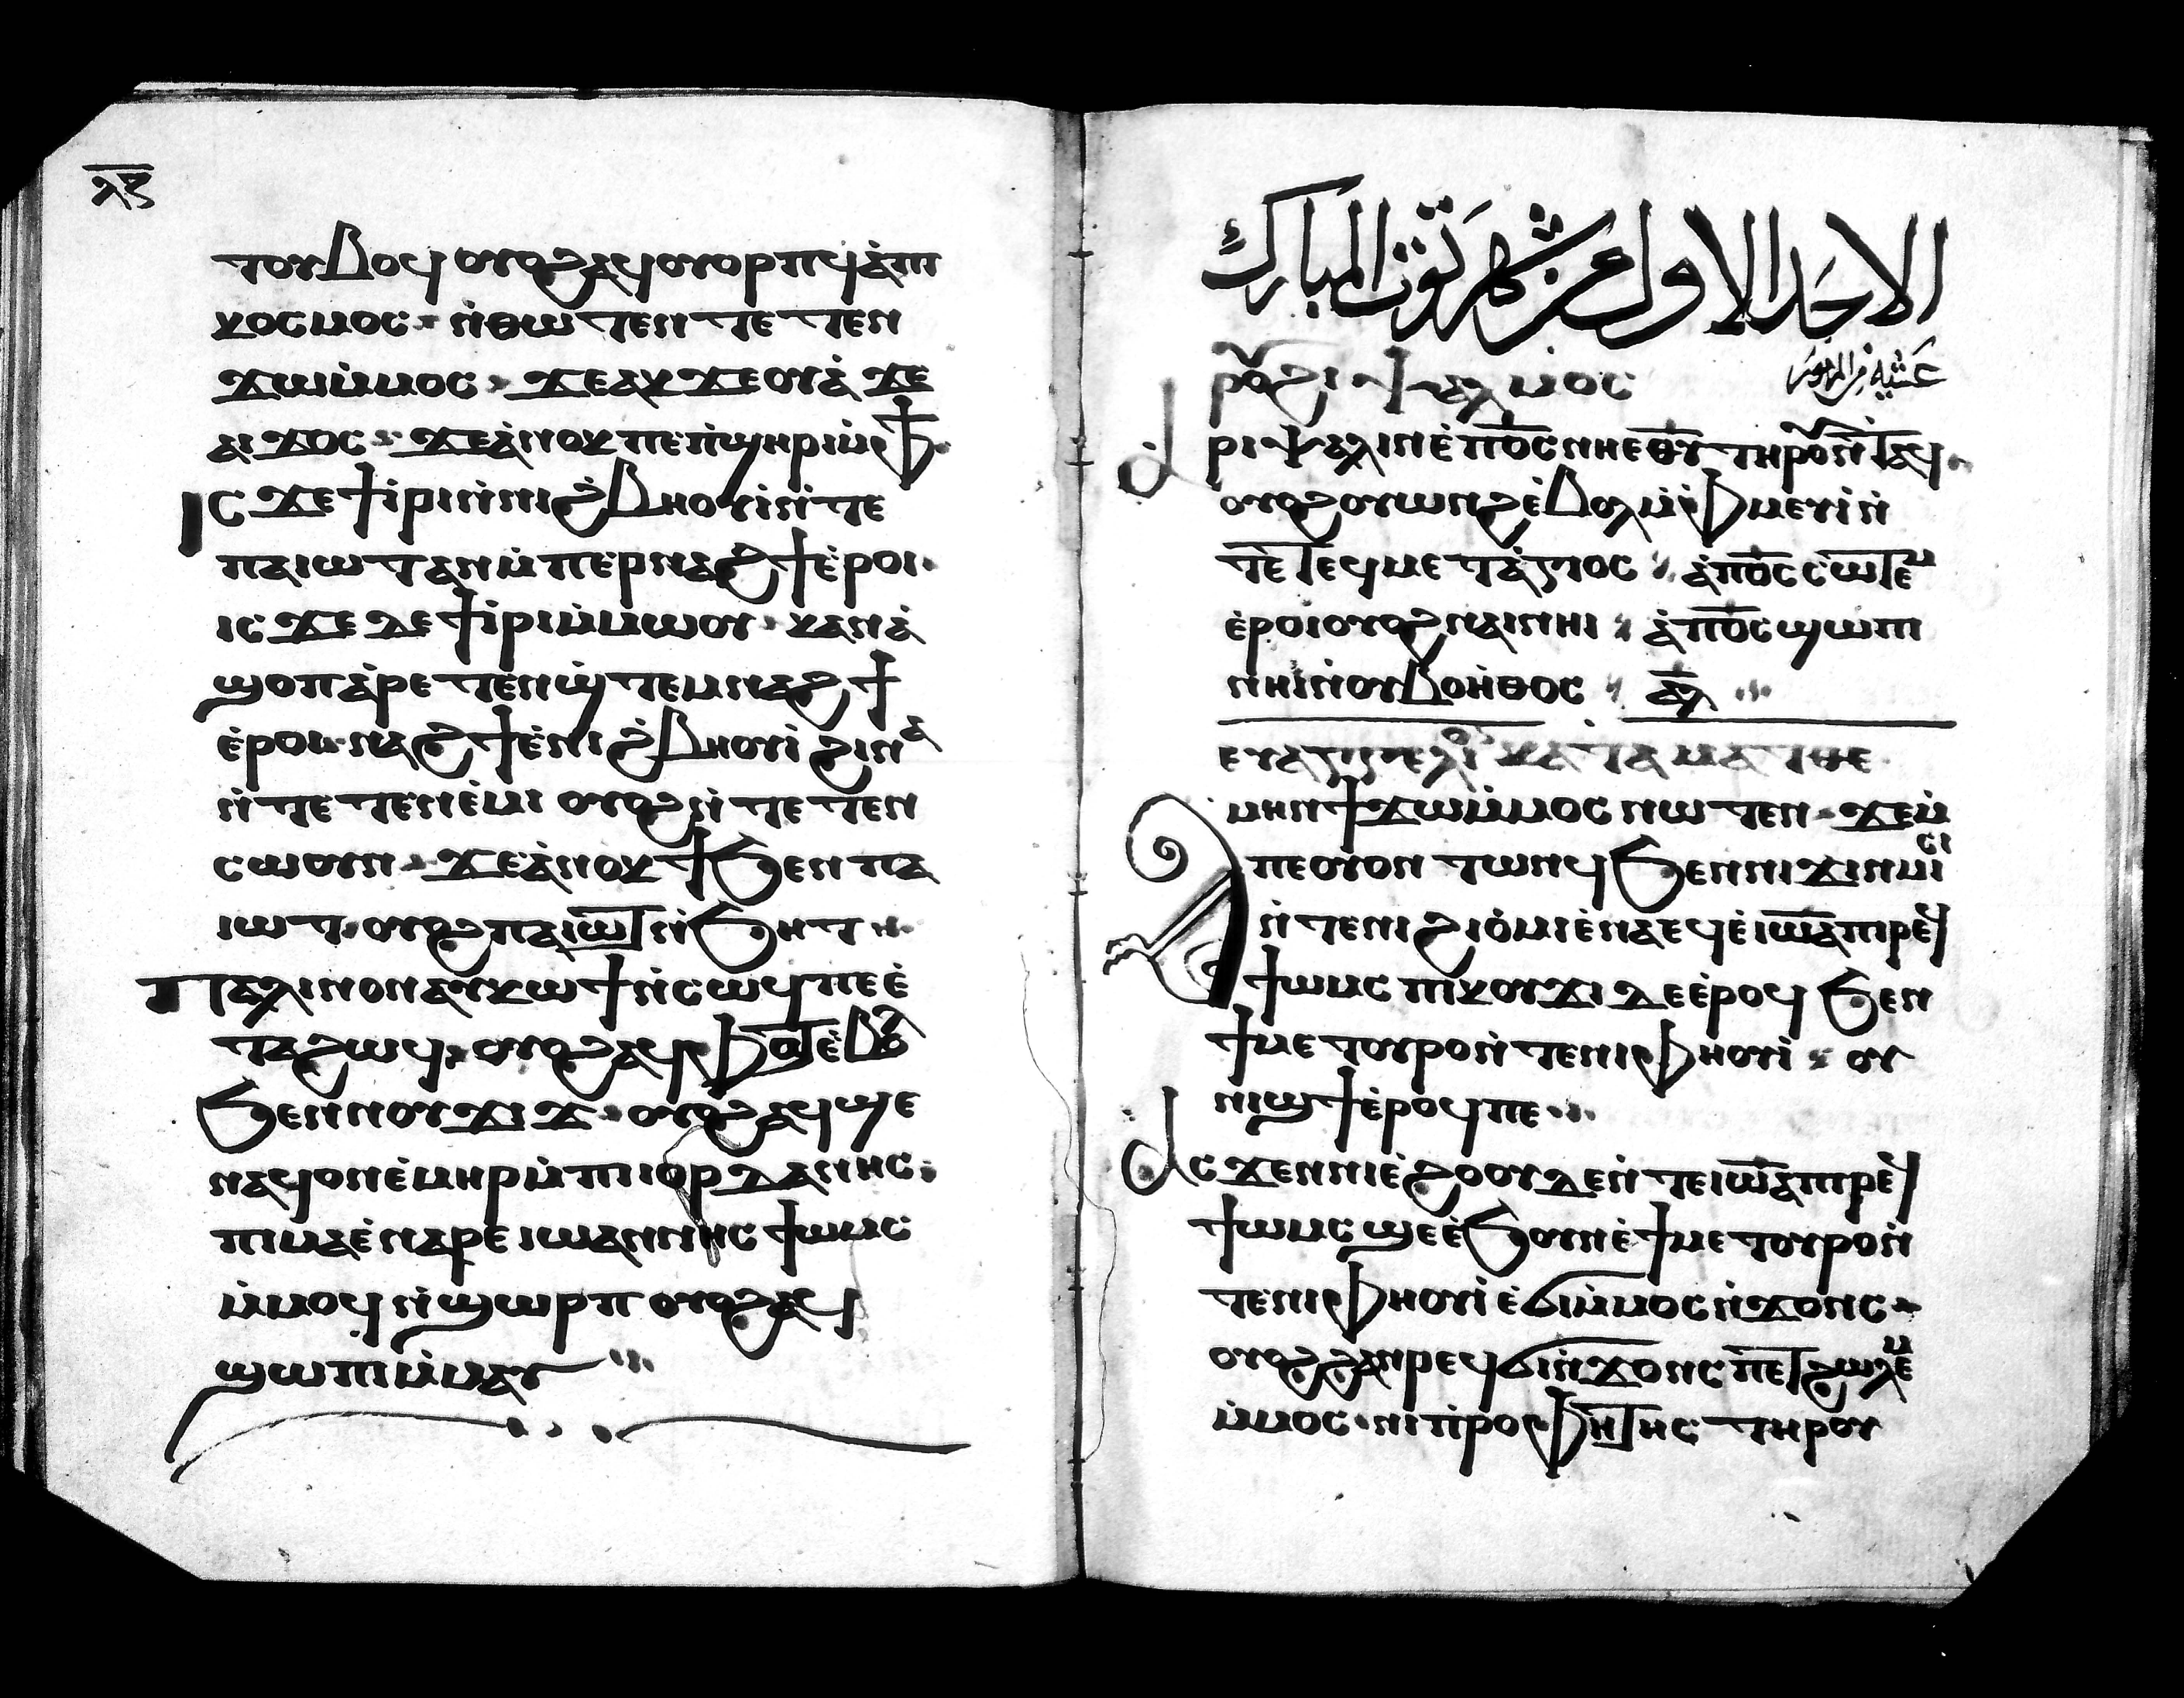 ⲗ̅ⲋ̅
ⲧⲟⲩⲃⲟϥ ⲟⲩⲟϩ ⲁϥⲟⲩⲟⲣⲡϥ ⲉ̇ⲡⲓ
ⲕⲟⲥⲙⲟⲥ ⲛ̇ⲑⲱⲧⲉⲛ ⲧⲉⲧⲉⲛ
ϫⲱⲙ̇ⲙⲟⲥ ϫⲉ ⲁⲕϫⲉⲟⲩⲁ̇ ϫⲉ
ⲁⲓϫⲟⲥ ϫⲉ ⲁ̇ⲛⲟⲕ ⲡⲉ ⲡ̇ϣⲏⲣⲓ ⲙ̇ⲫϯ
ⲓⲥϫⲉ ϯⲓ̇ⲣⲓ ⲛ̇ⲛⲓϩ̇ⲃⲏⲟⲩⲓ̇ ⲛ̇ⲧⲉ
ⲡⲁⲓⲱⲧ ⲁⲛ ⲙ̇ⲡⲉⲣⲛⲁϩϯ ⲉ̇ⲣⲟⲓ
ⲓⲥϫⲉ ⲇⲉ ϯⲓ̇ⲣⲓ ⲙ̇ⲙⲱⲟⲩ ⲕⲁⲛ ⲁ̇
ϣⲟⲡ ⲁ̇ⲣⲉⲧⲉⲛϣ̇ⲧⲉⲙⲛⲁϩϯ
ⲉ̇ⲣⲟⲓ ⲛⲁϩϯ ⲉ̇ⲛⲓϩ̇ⲃⲏⲟⲩⲓ̇ ϩⲓⲛⲁ
ⲛ̇ⲧⲉⲧⲉⲛⲉ̇ⲙⲓ ⲟⲩⲟϩ ⲛ̇ⲧⲉⲧⲉⲛ
ⲥⲱⲟⲩⲛ ϫⲉ ⲁ̇ⲛⲟⲕ ϯϧⲉⲛ ⲡⲁ
ⲓⲱⲧ ⲟⲩⲟϩ ⲡⲁⲓⲱⲧ ⲛ̇ϧⲏⲧ
ⲡⲁⲗⲓⲛ ⲟⲛ ⲁⲩⲕⲱϯ ⲛ̇ⲥⲱϥ ⲡⲉ ⲉ̇
ⲧⲁϩⲱϥ ⲟⲩⲟϩ ⲁϥⲫⲱⲧ ⲉ̇ⲃⲟⲗ
ϧⲉⲛ ⲛⲟⲩϫⲓϫ ⲟⲩⲟϩ ⲁϥϣⲉ
ⲛⲁϥ ⲟⲛ ⲉ̇ⲙⲏⲣ ⲙ̇ⲡⲓⲓⲟⲣⲇⲁⲛⲏⲥ
ⲡⲓⲙⲁ ⲉ̇ⲛⲁⲣⲉ ⲓⲱⲁⲛⲛⲏⲥ ϯⲱⲙⲥ
ⲙ̇ⲙⲟϥ ⲛ̇ϣⲱⲣⲡ ⲟⲩⲟϩ ⲁϥ
ϣⲱⲡⲓ ⲙ̇ⲙⲁⲩ
الاحد الاول من شهر توت المبارك
ⲣⲟⲩϩⲓ ⲯⲁⲗⲙⲟⲥ عشية من المزمور
ⲁⲣⲓⲯⲁⲗⲓⲛ ⲉ̇ⲡϭⲟⲓⲥ ⲛⲏⲉⲑⲩ ⲧⲏⲣⲟⲩ ⲛ̇ⲧⲁϥ
ⲟⲩⲟϩ ⲟⲩⲱⲛϩ ⲉ̇ⲃⲟⲗ ⲙ̇ⲫⲙⲉⲩⲓ̇ ⲛ̇
ⲧⲉ ⲧⲉϥⲙⲉⲧⲁ̇ⲅⲓⲟⲥ ⲁ̇ⲡϭⲟⲓⲥ ⲥⲱⲧⲉⲙ
ⲉ̇ⲣⲟⲓ ⲟⲩⲟϩ ⲛⲁⲓ ⲛⲏⲓ ⲁ̇ⲡϭⲟⲓⲥ ϣⲱⲡⲓ
ⲛⲏⲓ ⲛ̇ⲟⲩⲃⲟⲏ̇ⲑⲟⲥ ⲁⲗ
ⲉⲩⲁⲅⲅⲉⲗⲓⲟⲛ ⲕⲁⲧⲁ ⲙⲁⲧⲑⲉ
ⲁⲙⲏⲛ ϯϫⲱⲙ̇ⲙⲟⲥ ⲛⲱⲧⲉⲛ ϫⲉ ⲙ̇
ⲡⲉ ⲟⲩⲟⲛ ⲧⲱⲛϥ ϧⲉⲛ ⲛⲓϫⲓⲛⲙⲓⲥⲓ
ⲛ̇ⲧⲉ ⲛⲓϩⲓⲟ̇ⲙⲓ ⲉ̇ⲛⲁⲉϥ ⲉ̇ⲓⲱⲁ ⲡⲓⲣⲉϥ
ϯⲱⲙⲥ ⲡⲓⲕⲟⲩϫⲓ ⲇⲉ ⲉ̇ⲣⲟϥ ϧⲉⲛ
ϯⲙⲉⲧⲟⲩⲣⲟ ⲛ̇ⲧⲉ ⲛⲓⲫⲏⲟⲩⲓ̇ ⲟⲩ
ⲛⲓϣϯ ⲉ̇ⲣⲟϥ ⲡⲉ
ⲓⲥϫⲉⲛ ⲛⲓⲉ̇ϩⲟⲟⲩ ⲇⲉ ⲛ̇ⲧⲉ ⲓⲱⲁ ⲡⲓⲣⲉϥ
ϯⲱⲙⲥ ϣⲉ ⲉ̇ϧⲟⲩⲛ ⲉ̇ϯⲙⲉⲧⲟⲩⲣⲟ ⲛ̇
ⲧⲉ ⲛⲓⲫⲏⲟⲩⲓ̇ ⲉ̇ϭⲓ ⲙ̇ⲙⲟⲥ ⲛ̇ϫⲟⲛⲥ
ⲟⲩⲟϩ ϩⲁⲛⲣⲉϥϭⲓ ⲛ̇ϫⲟⲛⲥ ⲡⲉⲧϩⲱⲗⲉⲙ
ⲙ̇ⲙⲟⲥ ⲛⲓⲡ̇ⲣⲟⲫⲏⲧⲏⲥ ⲧⲏⲣⲟⲩ